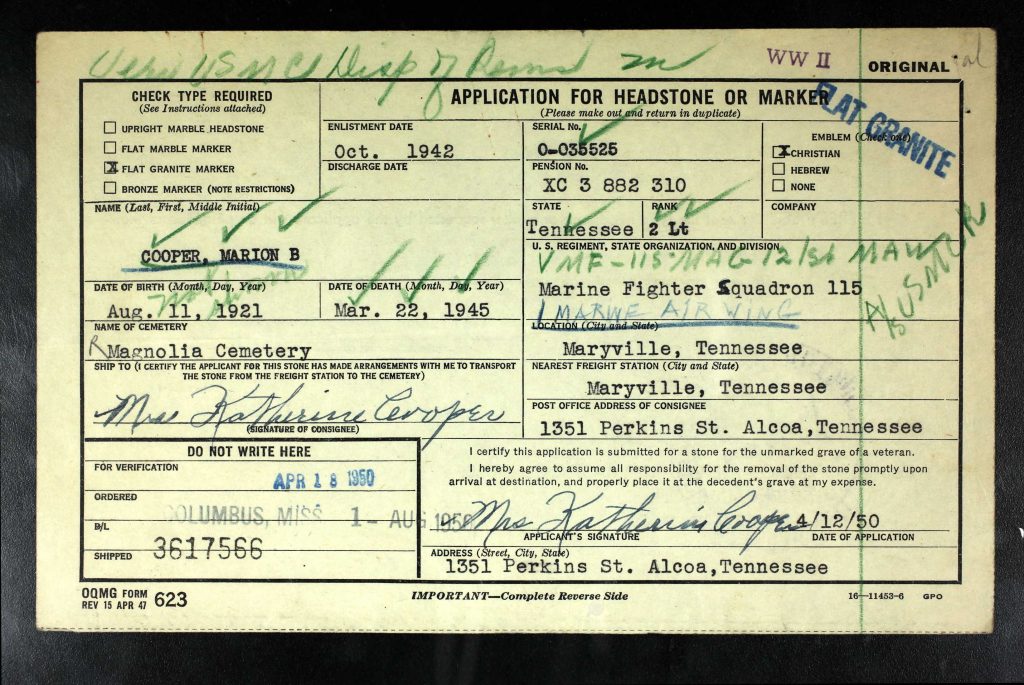 Verf USMC Disp of Rems
WW II
ORIGINAL
CHECK TYPE REQUIRED
(See Instructions attached)
UPRIGHT MARBLE HEADSTONE
FLAT MARBLE MARKER
X FLAT GRANITE MARKER
BRONZE MARKER (NOTE RESTRICTIONS)
APPLICATION FOR HEADSTONE OR MARKER
(Please make out and return in duplicate)
FLAT GRANITE
ENLISTMENT DATE
Oct. 1942
DISCHARGE DATE
SERIAL No.
O-035525
PENSION No.
XC 3 882 310
EMBLEM (Check one)
X CHRISTIAN
HEBREW
NONE
STATE
Tennessee
RANK
2 Lt
COMPANY
NAME (Last, First, Middle Initial)
COOPER, MARION B
U. S. REGIMENT, STATE ORGANIZATION, AND DIVISION
VMF-115 MAG 12/1st MAW
Marine Fighter Squadron 115
1 MARINE AIR WING
USMCR
DATE OF BIRTH (Month, Day, Year)
Aug. 11, 1921
DATE OF DEATH (Month, Day, Year)
Mar. 22, 1945
NAME OF CEMETERY
R Magnolia Cemetery
LOCATION (City and State)
Maryville, Tennessee
SHIP TO (I CERTIFY THE APPLICANT FOR THIS STONE HAS MADE ARRANGEMENTS WITH ME TO TRANSPORT
THE STONE FROM THE FREIGHT STATION TO THE CEMETERY)
Mrs Katherine Cooper
(SIGNATURE OF CONSIGNEE)
NEAREST FREIGHT STATION (City and State)
Maryville, Tennessee
POST OFFICE ADDRESS OF CONSIGNEE
1351 Perkins St. Alcoa,Tennessee
DO NOT WRITE HERE
FOR VERIFICATION
APR 18 1950
ORDERED
COLUMBUS, MISS 1- AUG 1950
B/L
SHIPPED
3617566
I certify this application is submitted for a stone for the unmarked grave of a veteran.
I hereby agree to assume all responsibility for the removal of the stone promptly upon
arrival at destination, and properly place it at the decedent's grave at my expense.
Mrs Katherine Cooper 4/12/50
APPLICANT'S SIGNATURE
DATE OF APPLICATION
ADDRESS (Street, City, State)
1351 Perkins St. Alcoa,Tennessee
OQMG FORM
REV 15 APR 47 623
IMPORTANT—Complete Reverse Side
16—11453-6 GPO